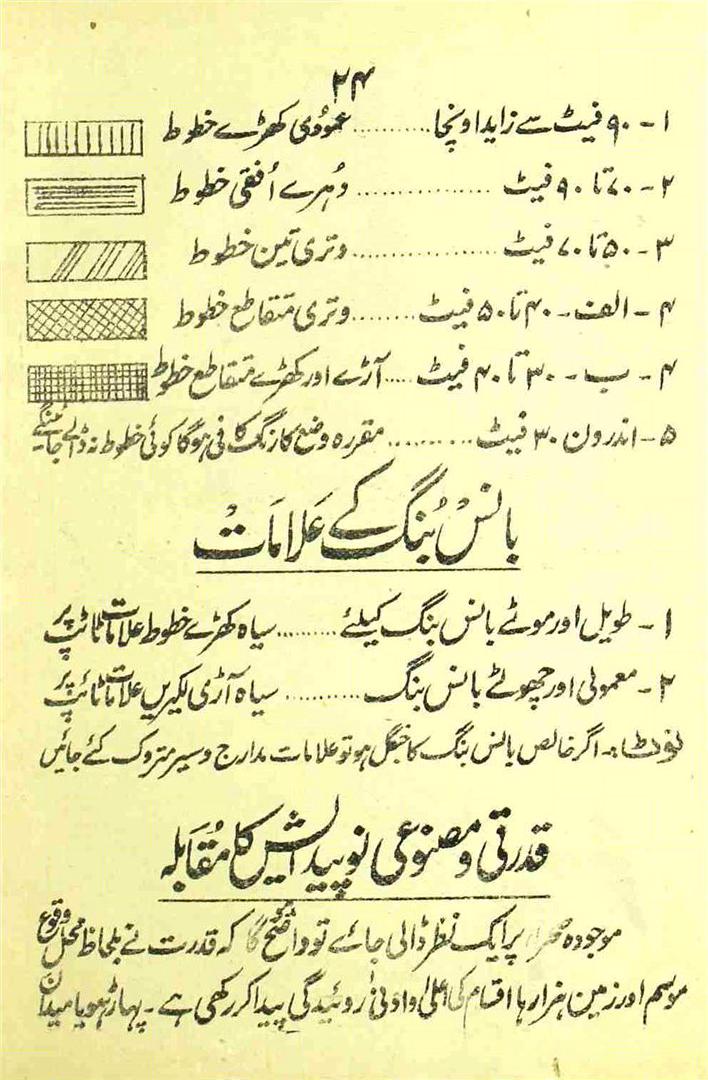 ۲۴
۱- ۹۰ فیٹ سے زاید اونچا .......... عمودی کھڑے خطوط
۲- ۷۰ تا ۹۰ فیٹ .......... دہرے اُفقی خطوط
۳- ۵۰ تا ۷۰ فیٹ .......... وتری تین خطوط
۴- الف- ۴۰ تا ۵۰ فیٹ .......... وتری متقاطع خطوط
۴- ب- ۳۰ تا ۴۰ فیٹ ..... آڑے اور کھڑے متقاطع خطوط
۵- اندرون ۳۰ فیٹ .......... مقررہ وضع کا رنگ کافی ہوگا کوئی خطوط نہ ڈالے جائینگے-
بانس بُنگ کے عَلامَات
۱- طویل اور موٹے بانس بنگ کیلئے ......... سیاہ کھڑے خطوط علامات ٹائپ پر
۲- معمولی اور چھوٹے بانس بنگ .......... سیاہ آڑی لکیریں علامات ٹائپ پر
نوٹ:- اگر خالص بانس بنگ کا جنگل ہو تو علامات مدارج و سیر متروک کئے جائیں
قدرتی و مصنوعی نو پیدایش کا مُقَابلہ
موجودہ پر ایک نظر ڈالی جائے تو واضح ہوگا کہ قدرت نے بلحاظ محل وقوع
موسم اور زمین ہزارہا اقسام کی اعلیٰ و ادنیٰ روئیدگی پیدا کر رکھی ہے - پہاڑ ہو یا میدان